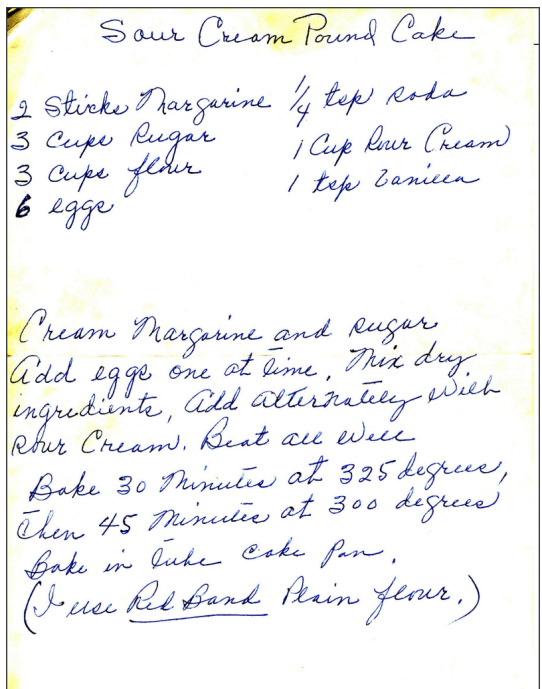 Sour Cream Pound Cake
2 Sticks Margarine 1/4 tsp soda
3 Cups Sugar 1 Cup Sour Cream
3 Cups flour 1 tsp Vanilla
6 eggs
Cream Margarine and sugar
Add eggs one at time. Mix dry
ingredients, Add alternately with
Sour Cream. Beat all well
Bake 30 Minutes at 325 degrees,
Then 45 Minutes at 300 degrees
Bake in tube cake pan.
(I use Red Band Plain flour.)